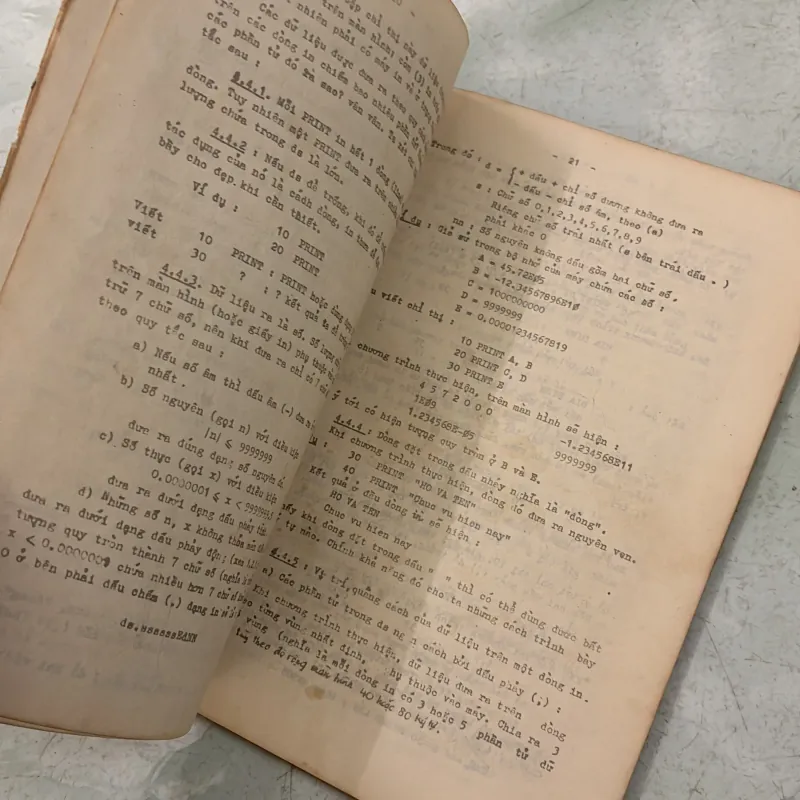 trên màn hình; còn
Các dữ liệu được đưa ra theo quy
tắc sau :
4.4.1. Mỗi PRINT in hết 1 dòng
dòng. Tuy nhiên một PRINT đưa ra trên
lượng chứa trong đa là lớn.
4.4.2 : Nếu đa để trống, khi đó
tác dụng của nó là cách dòng, in thưa để
bầy cho đẹp khi cần thiết.
Ví dụ :
Viết 10 PRINT
viết 20 PRINT
10 PRINT : PRINT hoặc dùng
30 ? : ? kết quả ta để
4.4.3. Dữ liệu ra là số. Số lượng
trên màn hình (hoặc giấy in) phụ thuộc
trừ 7 chữ số, nên khi đưa ra chỉ có 7
theo quy tắc sau :
a) Nếu số âm thì dấu âm (-) đưa
nhất.
b) Số nguyên (gọi n) với điều kiện
|n| ⩽ 9999999
đưa ra đúng dạng số nguyên đó.
c) Số thực (gọi x) với điều kiện
0.0000001 ⩽ x <
đưa ra dưới dạng dấu phảy
d) Những số n, x không thỏa mãn
đưa ra dưới dạng dấu phảy động; (xem
tượng quy tròn thành 7 chữ số (nghĩa
x < 0.0000001 chứa nhiều hơn 7 chữ số
0 ở bên phải dấu chấm (.) dạng in số
ds.ssssssEΔNN
- 21 -
Trong đó : Δ = { + dấu + chỉ số dương không đưa ra
- dấu - chỉ số âm, theo (a)
s : Chữ số 0,1,2,3,4,5,6,7,8,9
Riêng chữ số trái nhất (s bên trái dấu . )
phải khác 0
nn : Số nguyên không dấu gồm hai chữ số.
dụ : Giả sử trong bộ nhớ của máy chứa các số :
A = 45.72EØ5
B = -12.34567896E1Ø
C = 1000000000
D = 9999999
E = 0.00001234567819
viết chỉ thị :
10 PRINT A, B
20 PRINT C, D
30 PRINT E
chương trình thực hiện, trên màn hình sẽ hiện :
4 5 7 2 0 0 0 -1.234568E11
1EØ9 9999999
1.234568E-Ø5
tới có hiện tượng quy tròn ở B và E.
4.4.4 : Dòng đặt trong dấu nháy nghĩa là "dòng".
Khi chương trình thực hiện, dòng đó đưa ra nguyên vẹn.
30 PRINT "HO VA TEN"
40 PRINT "Chuc vu hien nay"
Kết quả ở đầu dòng in sẽ hiện :
HO VA TEN
Chuc vu hien nay
khi dòng đặt trong dấu " " thì có thể dùng được bất
tự nào. Chính khả năng đó cho ta những cách trình bày
4.4.5 : Vị trí, quãng cách của dữ liệu trên một dòng in.
a) Các phần tử trong đa ng n cách bởi dấu phảy (,) :
Khi chương trình thực hiện, dữ liệu đưa ra trên dòng
theo từng vùng nhất định, hụ thuộc vào máy. Chia ra 3
vùng (nghĩa là mỗi dòng in có 3 hoặc 5 phần tử dữ
tùy theo độ rộng màn hình 40 hoặc 80 ký tự.